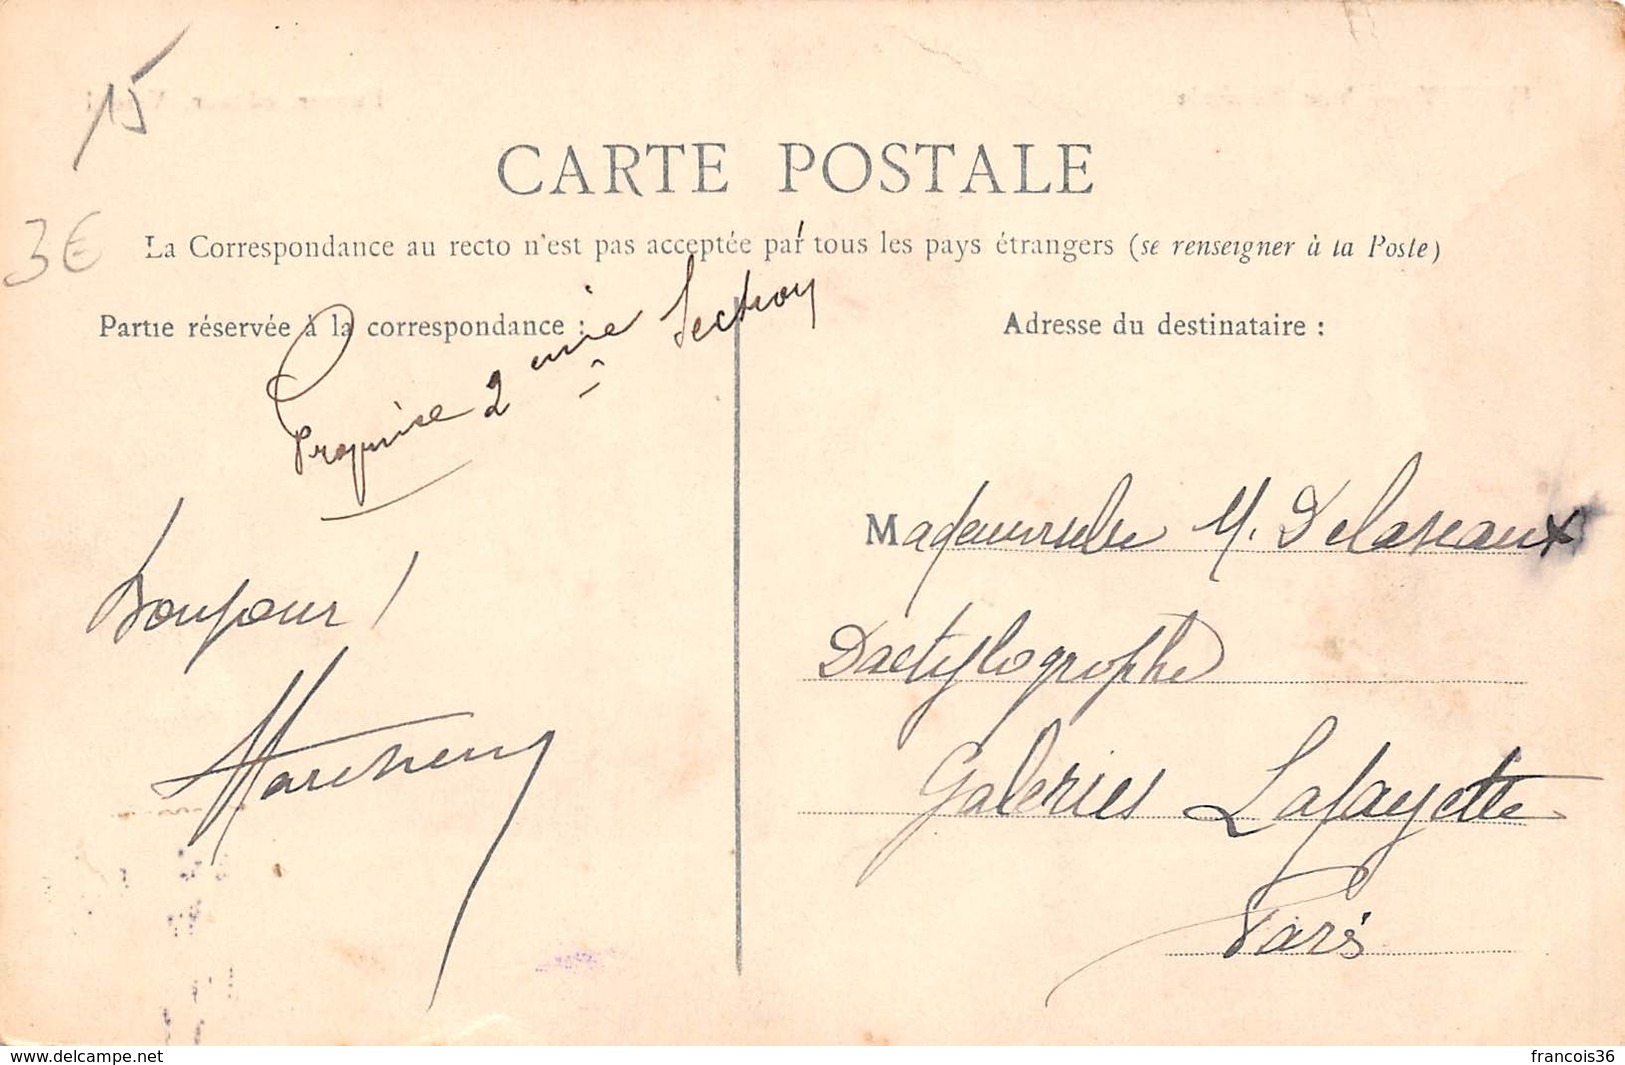 15
3€
CARTE POSTALE
La Correspondance au recto n'est pas acceptée par tous les pays étrangers (se renseigner à la Poste)
Partie réservée à la correspondance :
2 eme Section
Bonjour !
Adresse du destinataire :
Mademoiselle M. Delaseaux
Dactylographe
Galeries Lafayette
Paris
www.delcampe.net
francois36